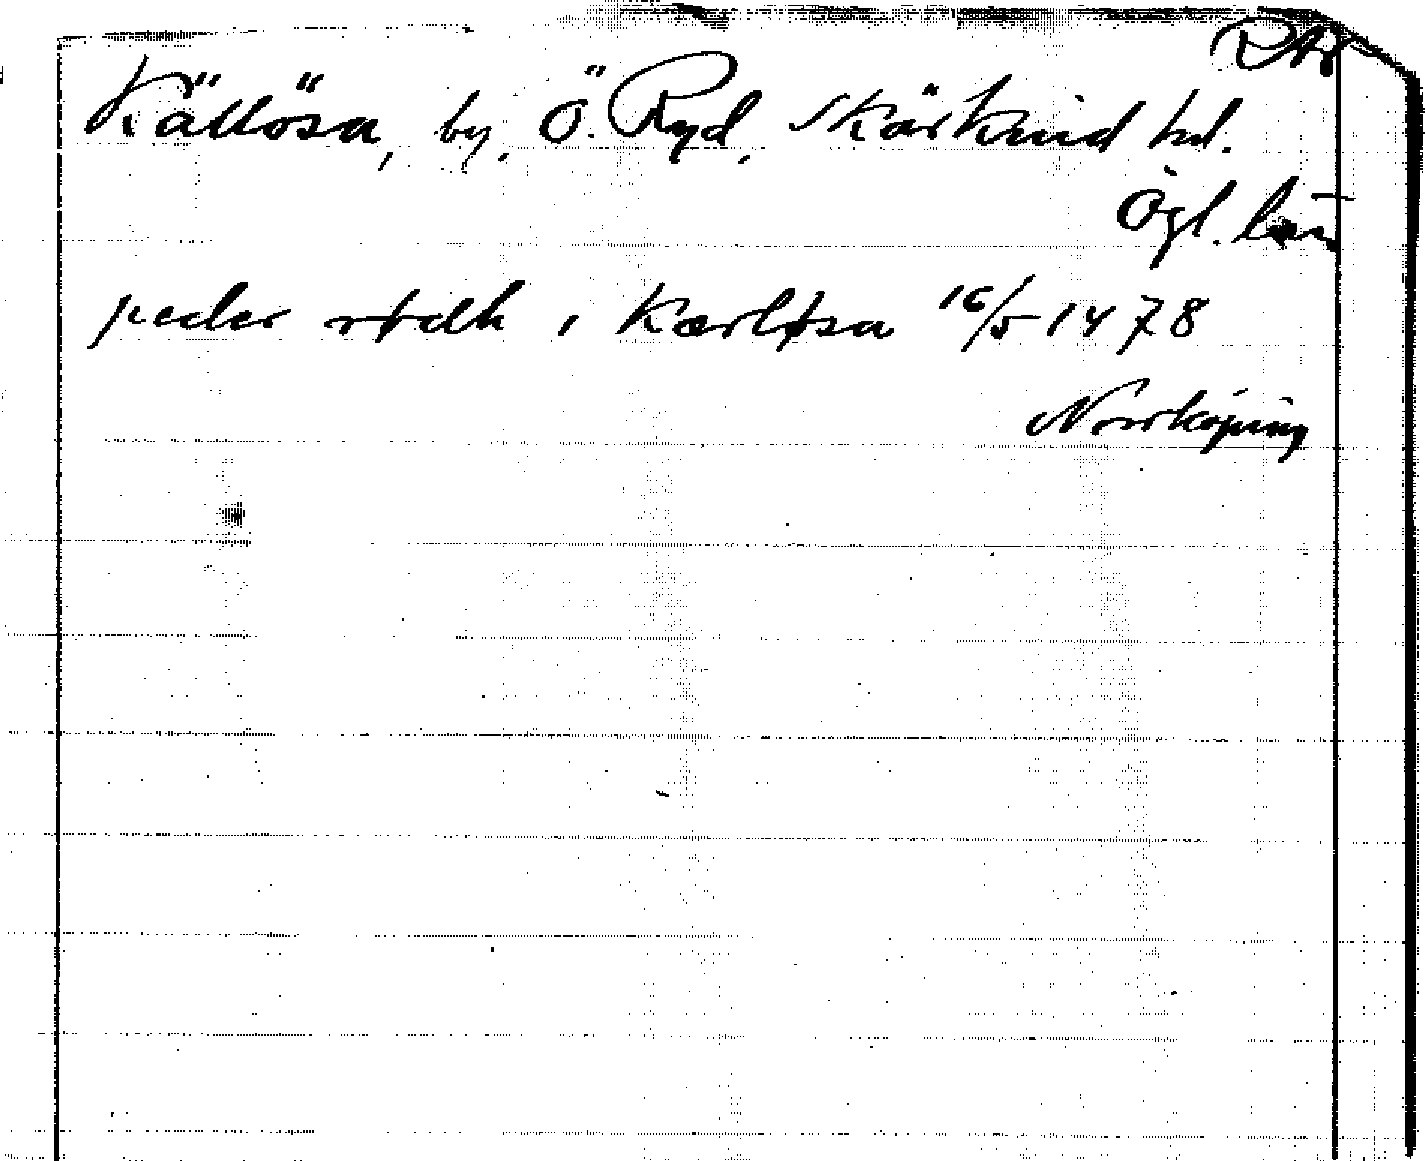 RAp
Källösa, by, Ö. Ryd, Skärkind hd.
Ögl. län
peder rødh i Kærløsa 16/5 1478
Norrköping